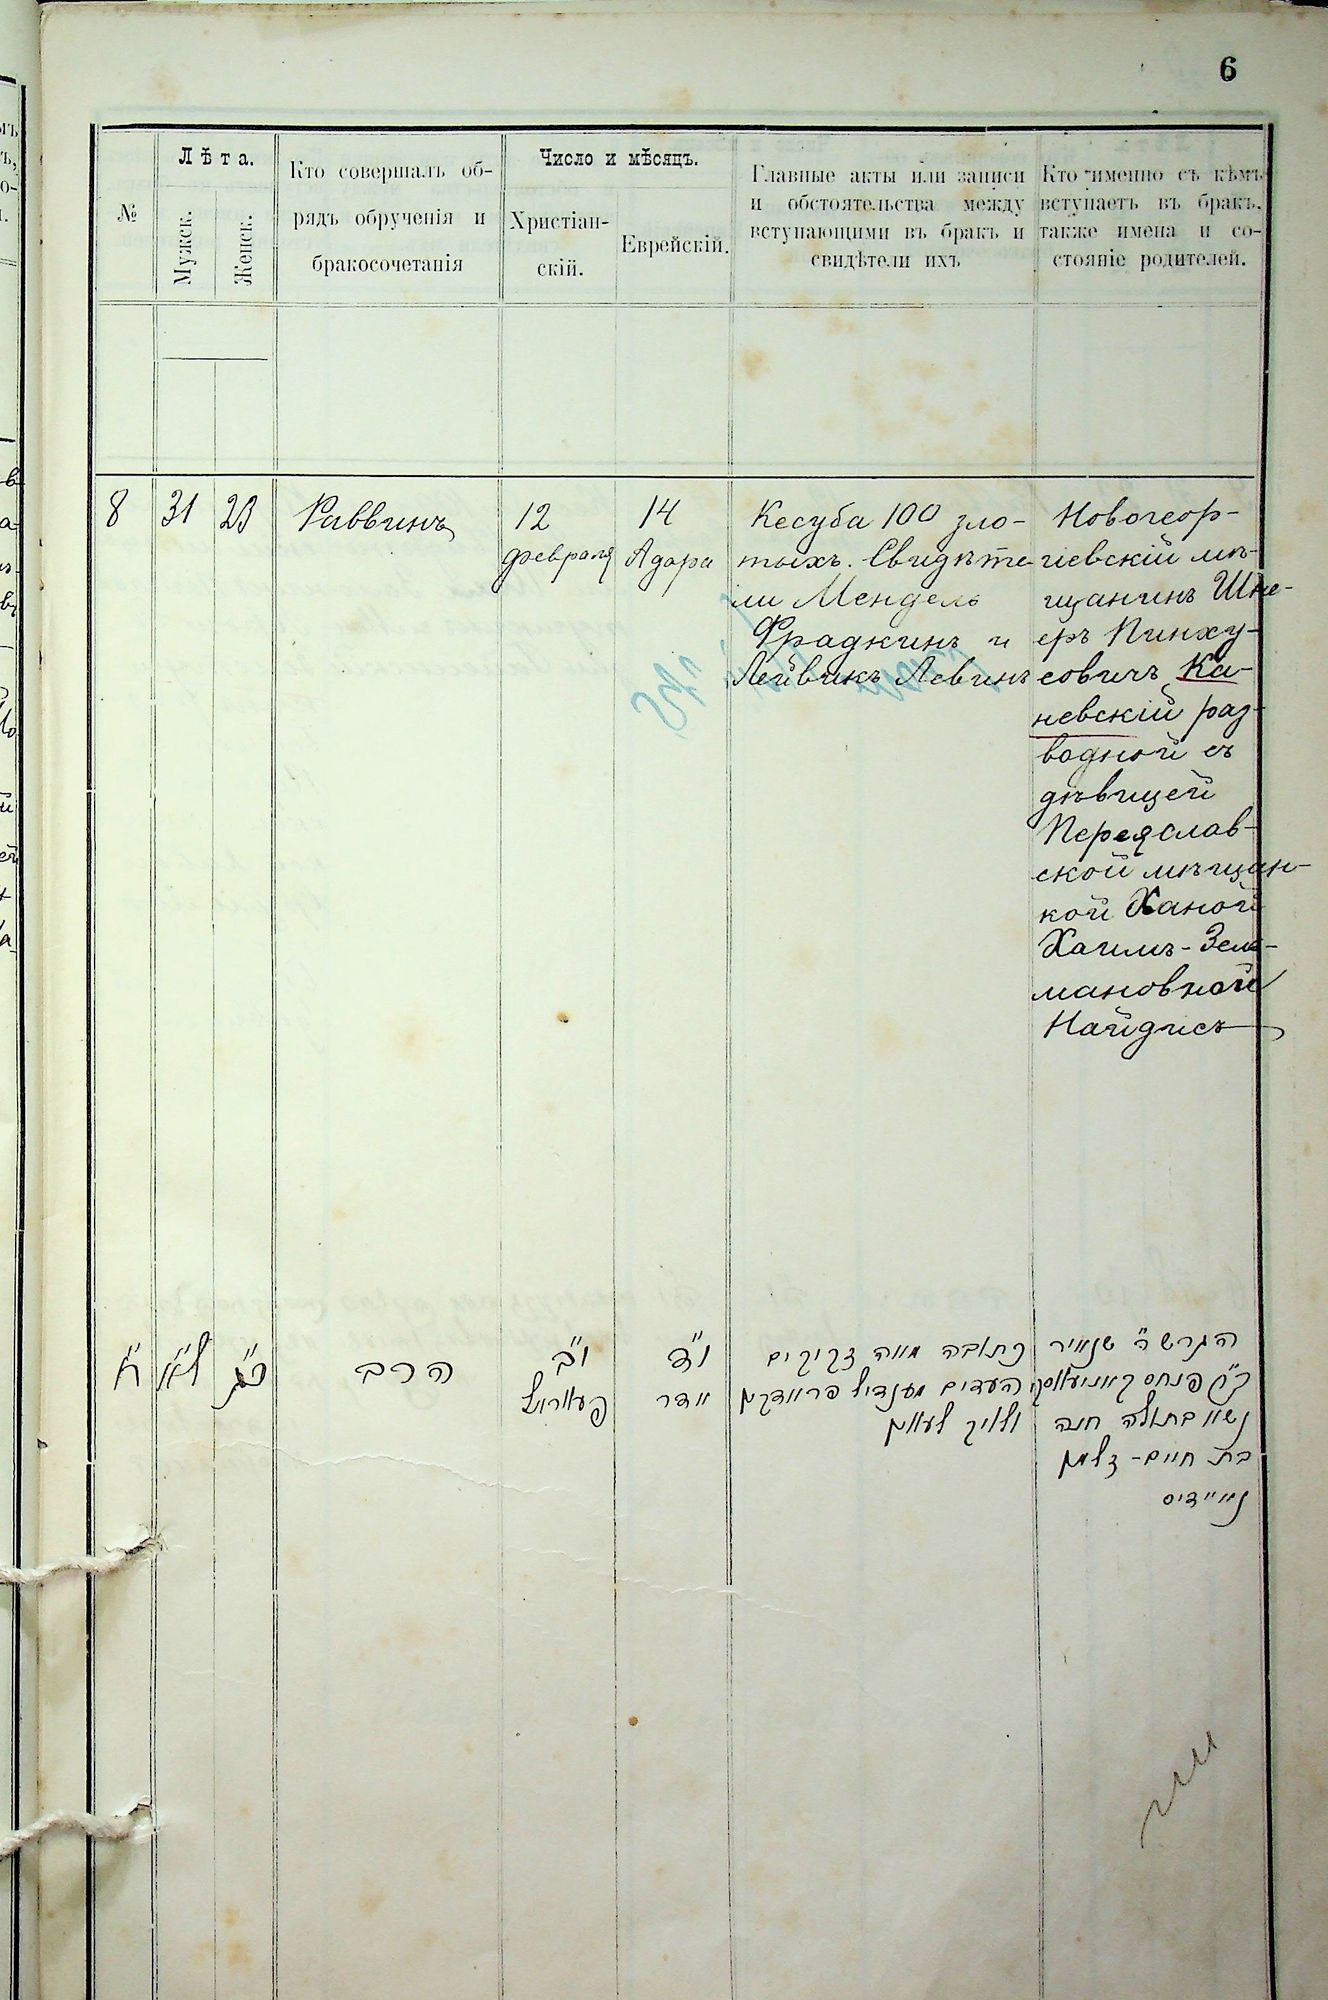 6
№
Лѣта.
Мужск.
Женск.
Кто совершалъ об-
рядъ обрученія и
бракосочетанія
Число и мѣсяцъ.
Христіан-
скій.
Еврейскій.
Главные акты или записи
и обстоятельства между
вступающими въ бракъ и
свидѣтели ихъ
Кто именно съ кѣмъ
вступаетъ въ бракъ,
также имена и со-
стояніе родителей.
8
31
23
Раввинъ
12
февраля
14
Адара
Кесуба 100 зло-
тыхъ. Свидѣте
ли Мендель
Фрадкинъ и
Лейвикъ Левинъ
Новогеор-
гіевскій мѣ-
щанинъ Шне-
еръ Пинху-
совичъ Ка-
невскій раз-
водной съ
дѣвицей
Переяслав-
ской мѣщан-
кой Ханой
Хаимъ-Зель-
мановной
Найдисъ
ח"
ל"א
כ"ג
הרב
י"ב
פעווראל
י"ד
אדר
כתובה מאה זקוקים
העדים מענדיל פראדקין
ולייוויק לעווין
הגרש"ה שניאיר
ב"ר פנחס קאניעווסקי
נשא בתולה חנה
בת חיים-זלמן
ניידיס